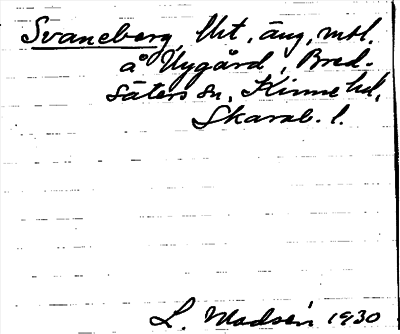 Svaneberg, Utt. äng, mtl.
å Nygård, Bred-
säters sn, Kinne hd,
Skarab. l.
L. Madsén 1930